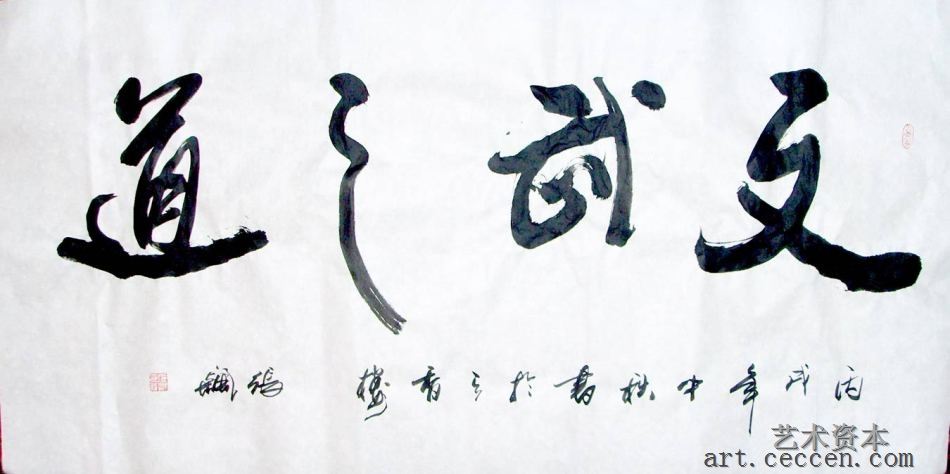 文武之道
丙戌年中秋書於三香樓 張
艺术资本
art.ceccen.com